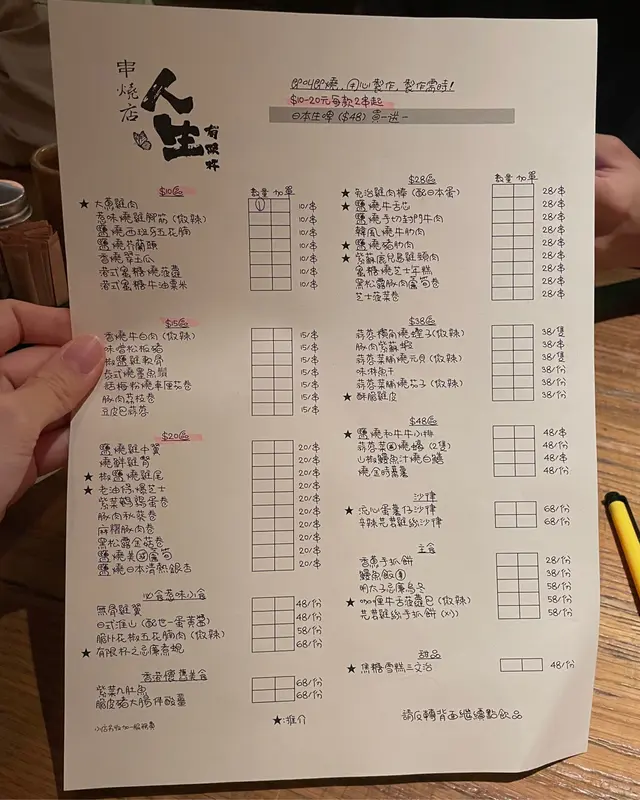 串燒店
人生
有限杯
即叫即燒，用心製作，製作需時！
$10-20元每款2串起
日本生啤 ($48) 買一送一
$10區 數量 加單
★ 大蔥雞肉 ① 10/串
惹味燒雞腳筋 (微辣) 10/串
鹽燒西班牙五花腩 10/串
鹽燒芥蘭頭 10/串
香燒翠玉瓜 10/串
港式蜜糖燒菠蘿 10/串
港式蜜糖牛油粟米 10/串
$15區
香燒牛白肉 (微辣) 15/串
味噌松板豬 15/串
椒鹽雞軟骨 15/串
泰式燒墨魚鬚 15/串
話梅粉燒車厘茄卷 15/串
豚肉荔枝卷 15/串
豆皮巴蒜蓉 15/串
$20區
鹽燒雞中翼 20/串
燒鮮雞腎 20/串
★ 椒鹽燒雞尾 20/串
★ 老油條爆芝士 20/串
紫菜鵪鶉蛋卷 20/串
豚肉秋葵卷 20/串
麻糬豚肉卷 20/串
黑松露金菇卷 20/串
鹽燒美國蘆筍 20/串
鹽燒日本清熱銀杏 20/串
必食惹味小食
無骨雞翼 48/份
日式淮山 (配世一蛋黃醬) 48/份
脆汁花椒五花腩肉 (微辣) 58/份
★ 有限杯之忌廉煮蜆 68/份
香港懷舊美食
紫菜九肚魚 68/份
脆皮豬大腸伴酸薑 68/份
小店另收加一服務費
★:推介
$28區 數量 加單
★ 免治雞肉棒 (配日本蛋) 28/串
★ 鹽燒牛舌芯 28/串
鹽燒手切封門牛肉 28/串
韓風燒牛肋肉 28/串
★ 鹽燒豬肋肉 28/串
★ 紫蘇鹿兒島雞頸肉 28/串
蜜糖燒芝士年糕 28/串
黑松露豚肉蘆筍卷 28/串
芝士菠菜卷 28/串
$38區
蒜蓉橫角燒蟶子 (微辣) 38/隻
豚肉紫蘇蝦 38/串
蒜蓉菜脯燒元貝 (微辣) 38/隻
味淋魚干 38/份
蒜蓉菜脯燒茄子 (微辣) 38/份
★ 酥脆雞皮 38/份
$48區
★ 鹽燒和牛牛小排 48/串
蒜蓉菜圃燒蠔 (2隻) 48/份
山椒鰻魚汁燒白鱔 48/串
燒金時蕃薯 48/份
沙律
★ 流心蛋薯仔沙律 68/份
辛辣芫荽雞絲沙律 68/份
主食
香蔥手抓餅 28/份
鰻魚飯團 38/份
明太子忌廉烏冬 58/份
★ 咖喱牛舌菠蘿包 (微辣) 38/份
芫荽雞絲手抓餅 (凍) 58/份
甜品
★ 焦糖雪糕三文治 48/份
請反轉背面繼續點飲品